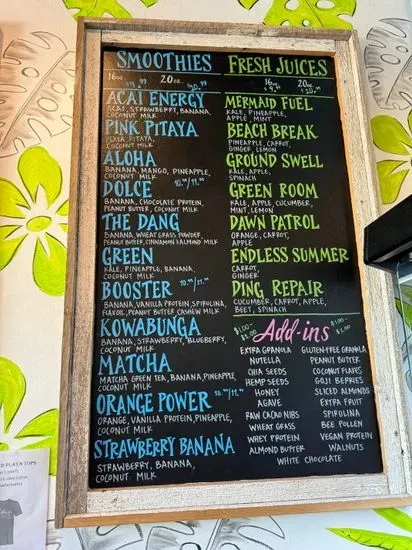 SMOOTHIES
16oz. 20oz.
ACAÍ ENERGY
ACAI, STRAWBERRY, BANANA,
COCONUT MILK
PINK PITAYA
PLAYA, PITAYA,
COCONUT MILK
ALOHA
BANANA, MANGO, PINEAPPLE,
COCONUT MILK
DOLCE
BANANA, CHOCOLATE PROTEIN,
PEANUT BUTTER, COCONUT MILK
THE DANG
BANANA, WHEAT GRASS POWDER,
PEANUT BUTTER, CINNAMON & ALMOND MILK
GREEN
KALE, PINEAPPLE, BANANA,
COCONUT MILK
BOOSTER
BANANA, VANILLA PROTEIN, SPIRULINA,
FLAX OIL, PEANUT BUTTER, CASHEW MILK
KOWABUNGA
BANANA, STRAWBERRY, BLUEBERRY,
COCONUT MILK
MATCHA
MATCHA GREEN TEA, BANANA, PINEAPPLE,
COCONUT MILK
ORANGE POWER
ORANGE, VANILLA PROTEIN, PINEAPPLE,
COCONUT MILK
STRAWBERRY BANANA
STRAWBERRY, BANANA,
COCONUT MILK
FRESH JUICES
16oz 20oz
MERMAID FUEL
KALE, PINEAPPLE,
APPLE, MINT
BEACH BREAK
PINEAPPLE, CARROT,
GINGER, LEMON
GROUND SWELL
KALE, APPLE,
SPINACH
GREEN ROOM
KALE, APPLE, CUCUMBER,
MINT, LEMON
DAWN PATROL
ORANGE, CARROT,
APPLE
ENDLESS SUMMER
CARROT,
GINGER
DING REPAIR
CUCUMBER, CARROT, APPLE,
BEET, SPINACH
Add-ins
EXTRA GRANOLA
NUTELLA
CHIA SEEDS
HEMP SEEDS
HONEY
AGAVE
RAW CACAO NIBS
WHEAT GRASS
WHEY PROTEIN
ALMOND BUTTER
GLUTEN-FREE GRANOLA
PEANUT BUTTER
COCONUT FLAKES
GOJI BERRIES
SLICED ALMONDS
EXTRA FRUIT
SPIRULINA
BEE POLLEN
VEGAN PROTEIN
WALNUTS
WHITE CHOCOLATE
PLAYA TOPS